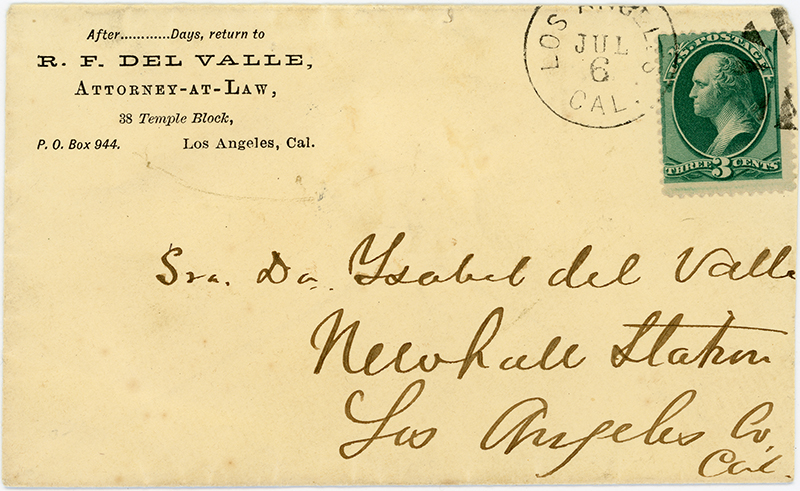 After............Days, return to
R. F. DEL VALLE,
ATTORNEY-AT-LAW,
38 Temple Block,
P. O. Box 944. Los Angeles, Cal.
LOS ANGELES
JUL
6
CAL.
U.S. POSTAGE
THREE 3 CENTS
Sra. Da. Ysabel del Valle
Newhall Station
Los Angeles Co,
Cal.